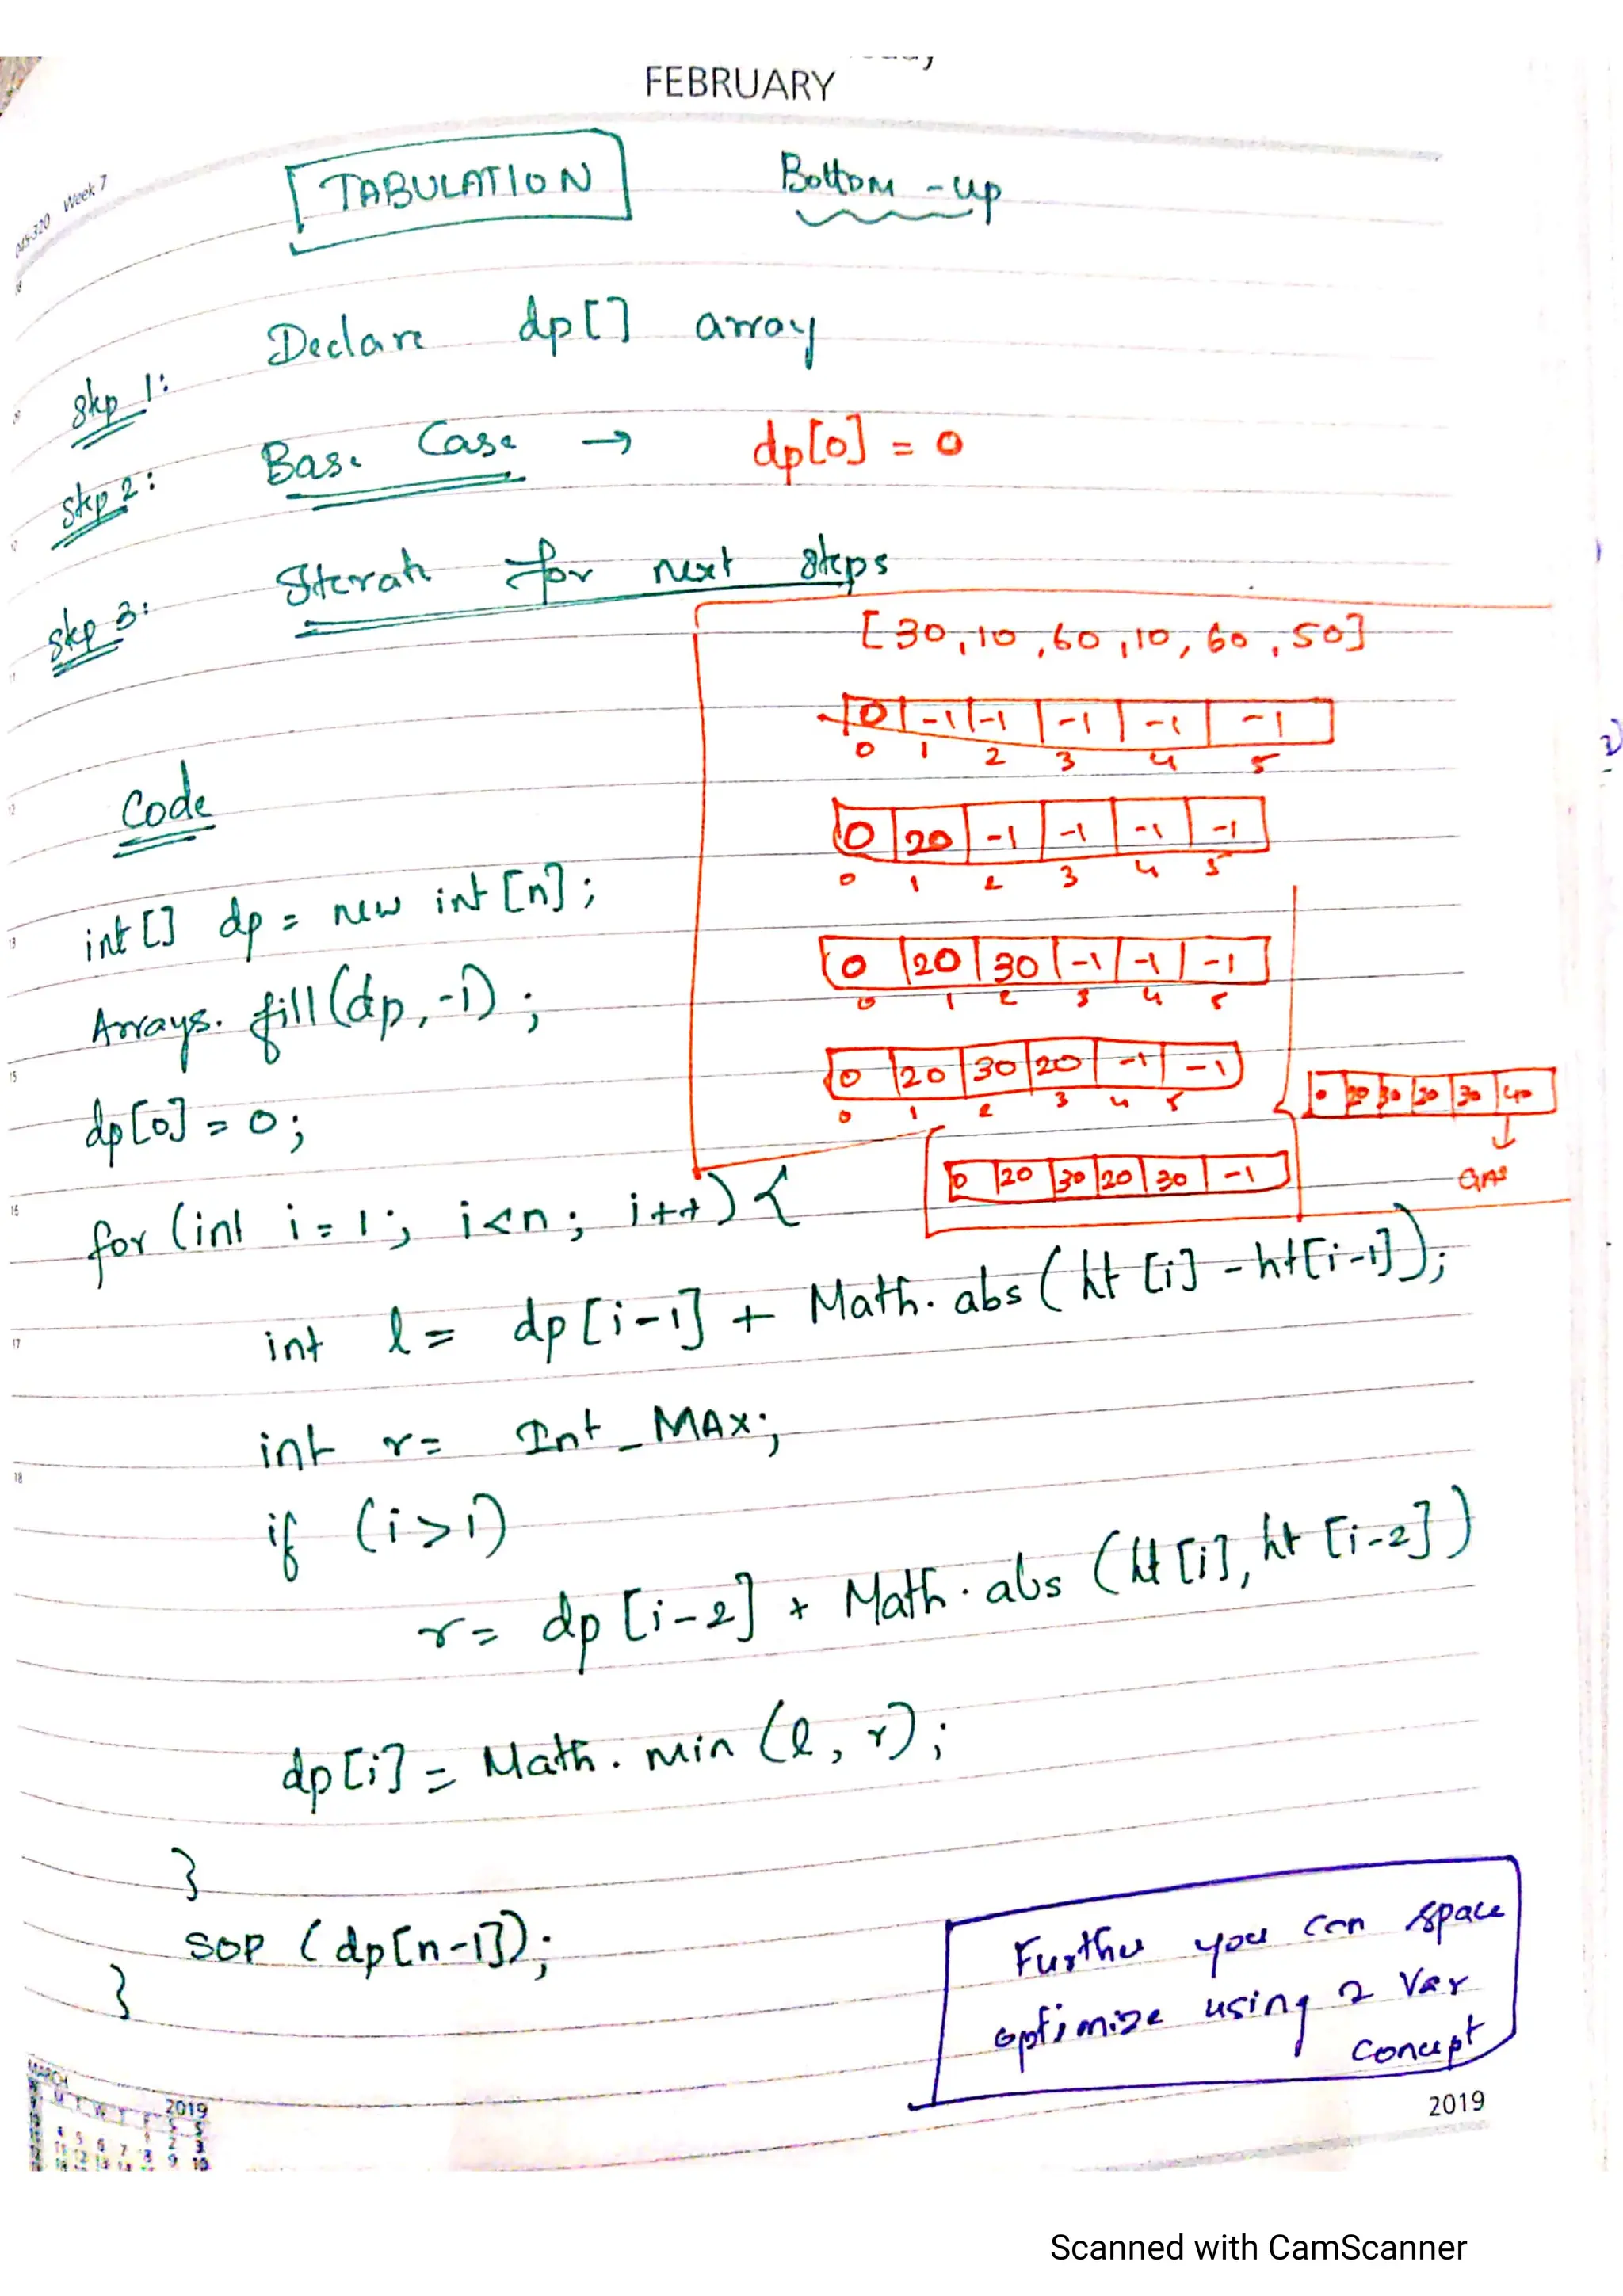 FEBRUARY
045-320 Week 7
TABULATION Bottom-up
Step 1: Declare dp[] array
Step 2: Base Case → dp[0] = 0
Step 3: Iterate for next steps
[30, 10, 60, 10, 60, 50]
0 -1 -1 -1 -1 -1
0 1 2 3 4 5
0 20 -1 -1 -1 -1
0 1 2 3 4 5
0 20 30 -1 -1 -1
0 1 2 3 4 5
0 20 30 20 -1 -1
0 1 2 3 4 5
0 20 30 20 30 -1
0 20 30 20 30 40
↓
ans
Code
int[] dp = new int[n];
Arrays.fill(dp, -1);
dp[0] = 0;
for (int i = 1; i<n; i++) {
int l = dp[i-1] + Math.abs(ht[i] - ht[i-1]);
int r = Int_MAX;
if (i>1)
r = dp[i-2] + Math.abs(ht[i], ht[i-2])
dp[i] = Math.min(l, r);
}
sop (dp[n-1]);
}
Further you can space
optimize using 2 Var
Concept
MARCH 2019
2019
Scanned with CamScanner